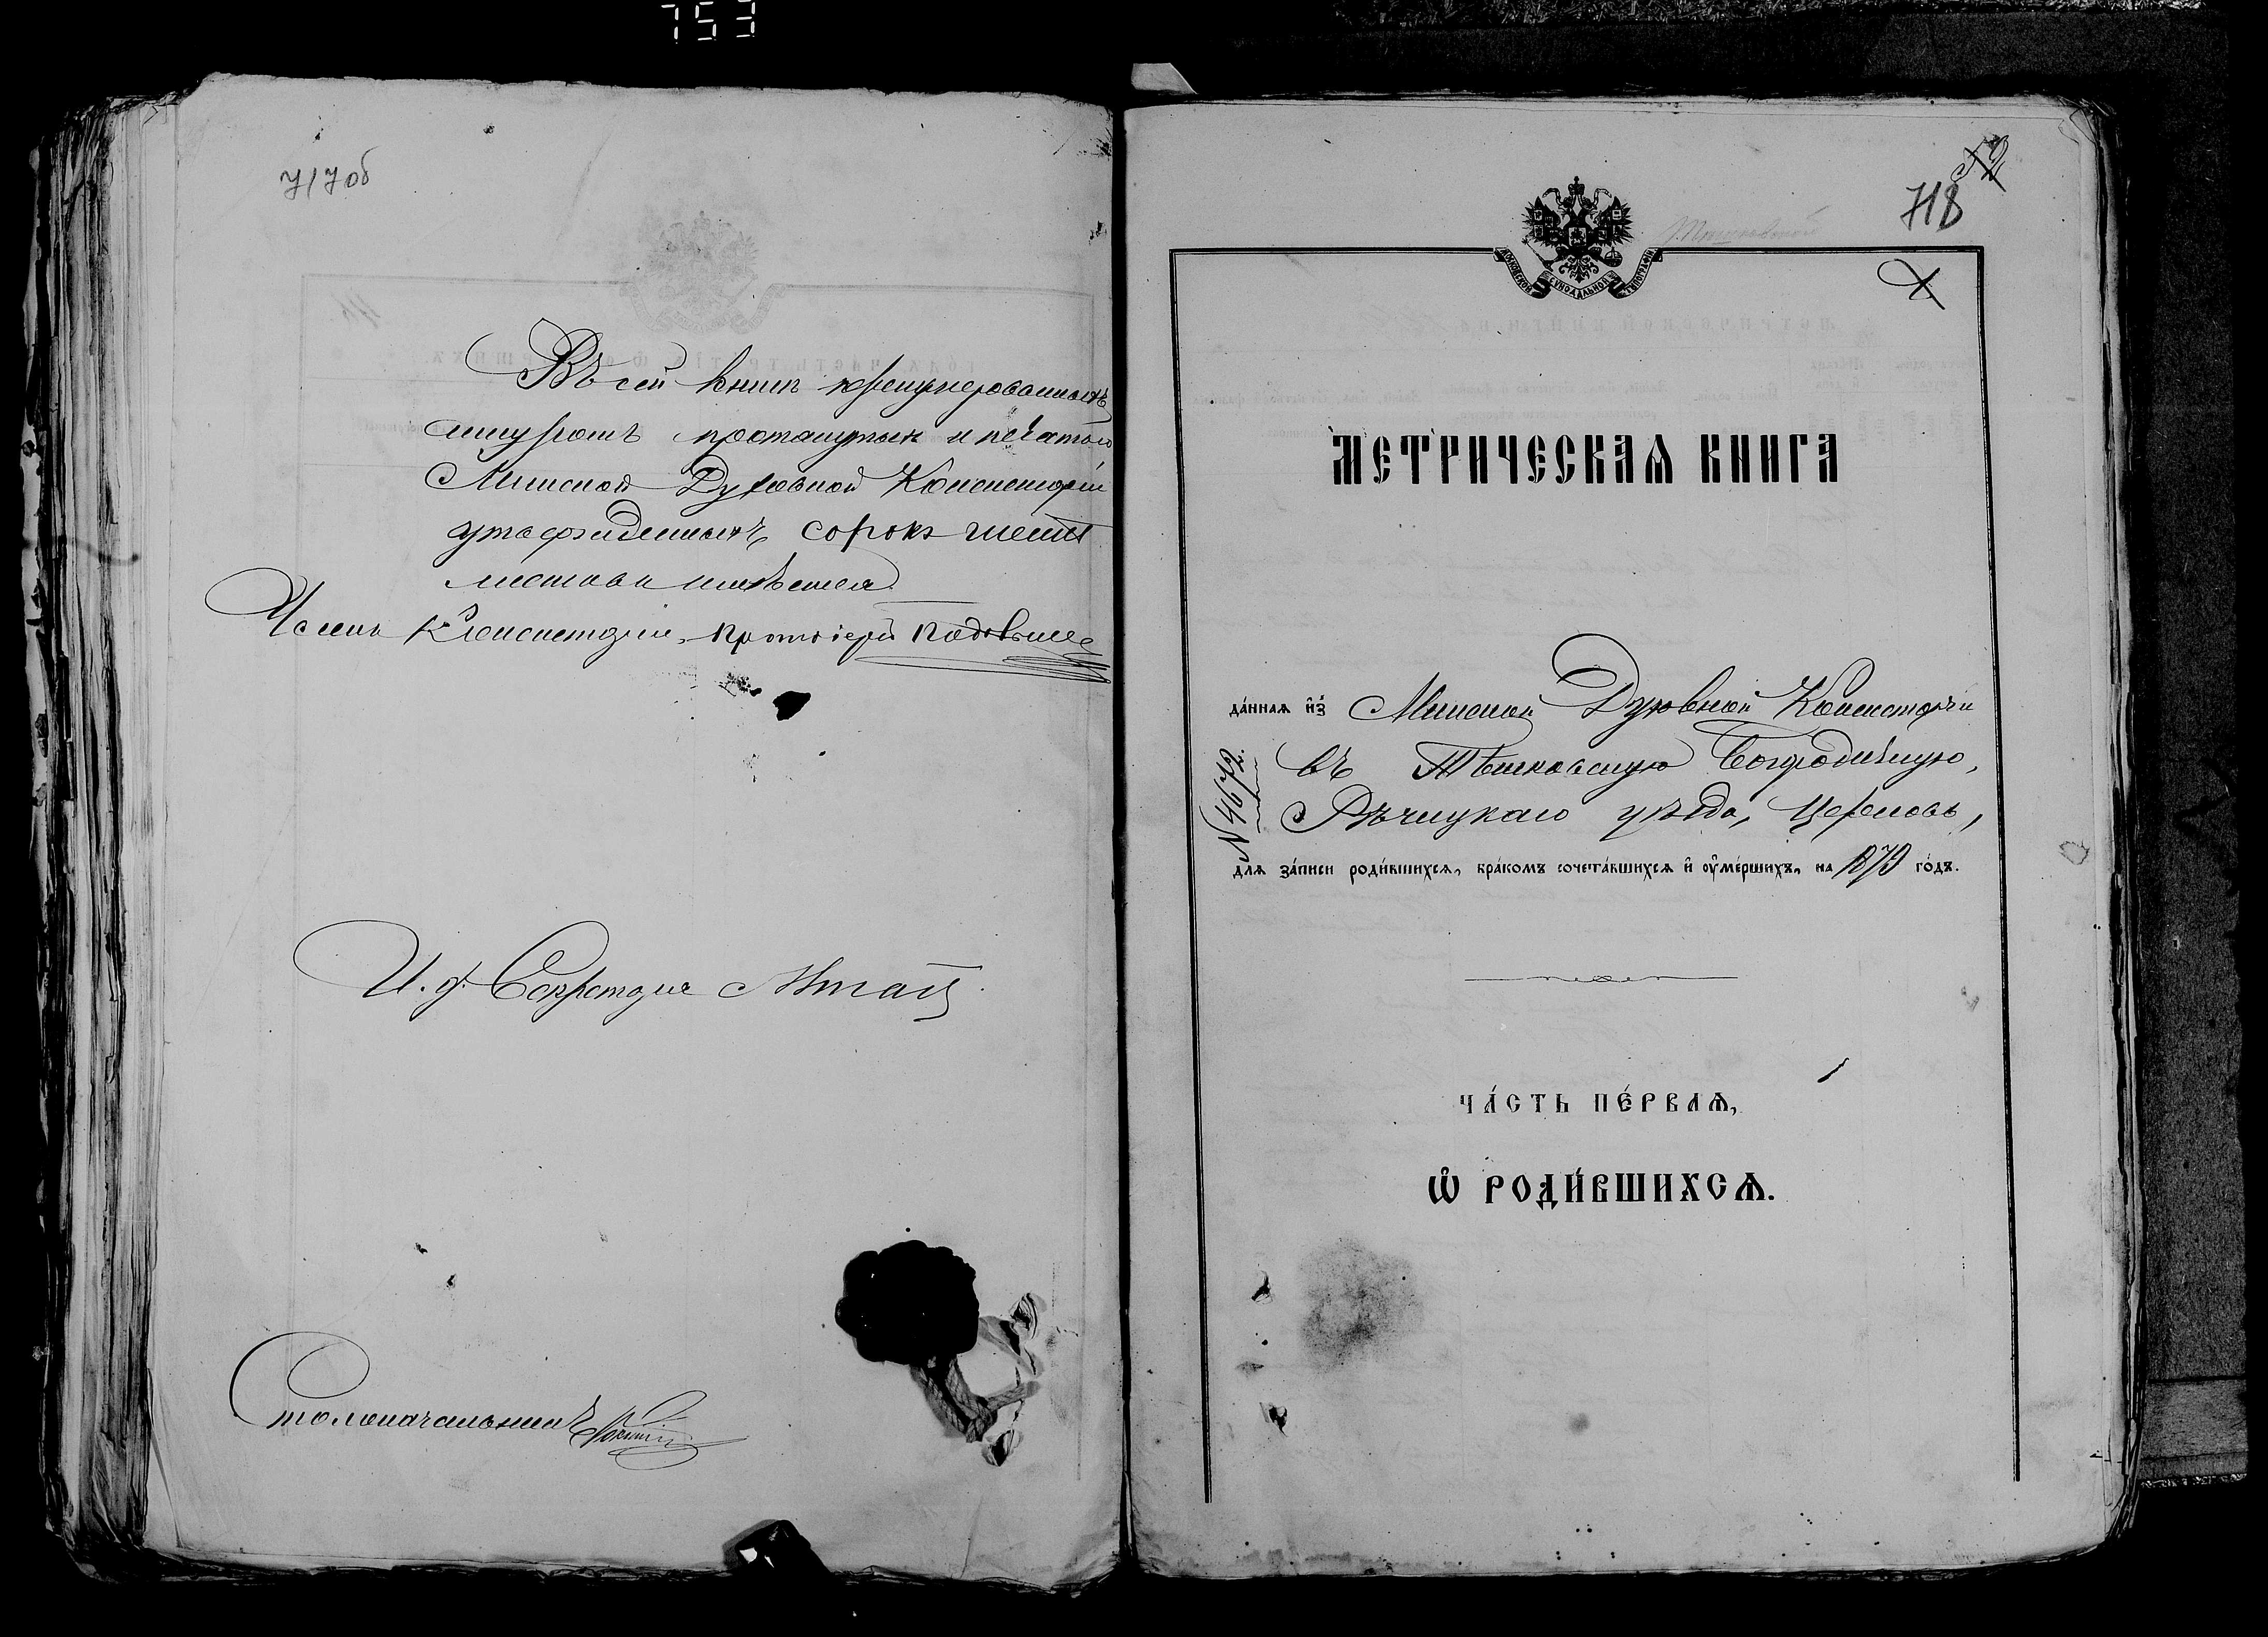 753
717об
Въ сей книгѣ пренумерованныхъ
шнуромъ протянутых и печатью
Минской Духовной Консисторіи
утвержденныхъ сорокъ шесть
листовъ имѣется.
Членъ Консисторіи, протоіерей
И. д. Секретаря
Столоначальникъ
52
718
МОСКОВСКОЙ СѴНОДАЛЬНОЙ ТИПОГРАФІИ
МЕТРИЧЕСКАѦ КНИГА
да́ннаѧ и҆з̾ Минской Духовной Консисторіи
въ Богородичную,
Рѣчицкаго уѣзда, Церковь,
№ 4672.
длѧ за́писи роди́вшихсѧ, бра́комъ сочета́вшихсѧ и҆ оу҆ме́ршихъ, на го́дъ.
ЧА́СТЬ ПЕ́РВАѦ,
Ѽ РОДИ́ВШИХСѦ.